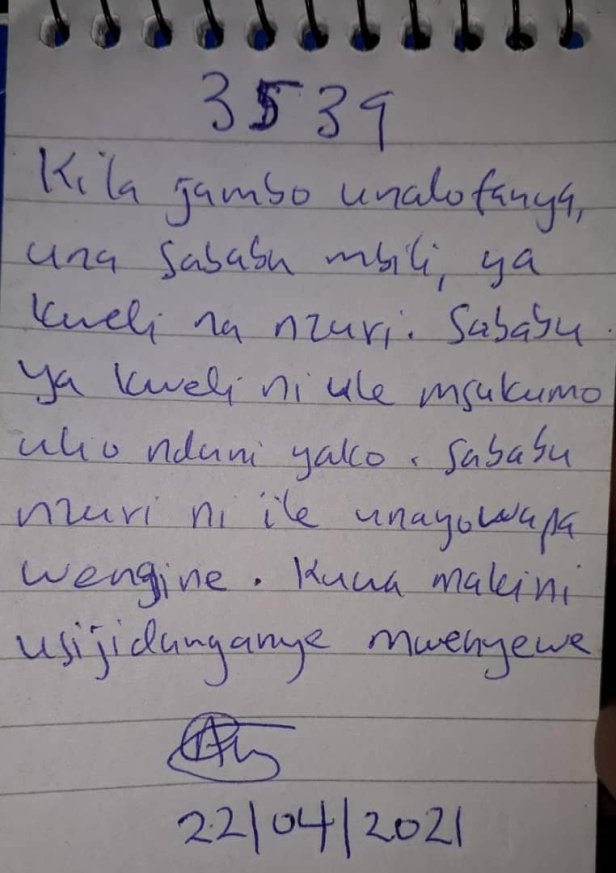 3539
Kila jambo unalofanya,
una sababu mbili, ya
kweli na nzuri. Sababu
ya kweli ni ule msukumo
uko nduni yako. Sababu
nzuri ni ile unayowapa
wengine. Kuwa makini
usijidanganye mwenyewe
22/04/2021